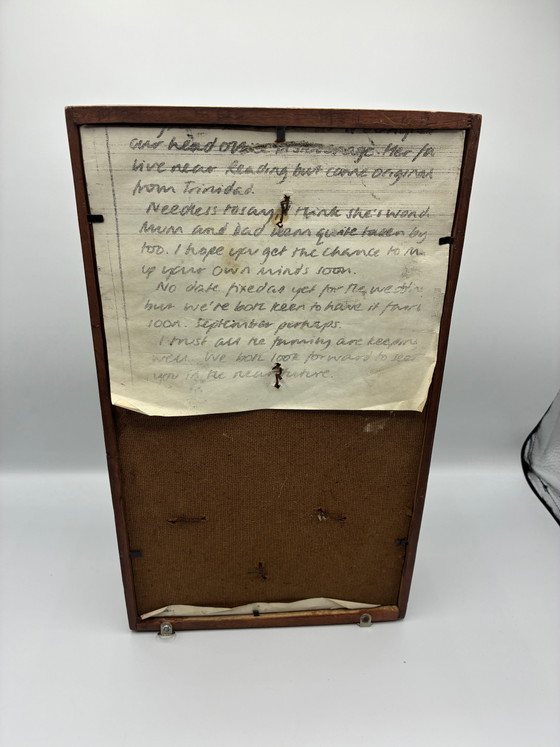 our head office in Stevenage. Her fa
live near Reading but came original
from Trinidad.
Needless to say, I think she's wond
Mum and Dad seem quite taken by
too. I hope you get the chance to m
up your own minds soon.
No date fixed as yet for the weddin
but we're both keen to have it fairl
soon. September perhaps.
I trust all the family are keeping
well. We both look forward to see
you in the near future.